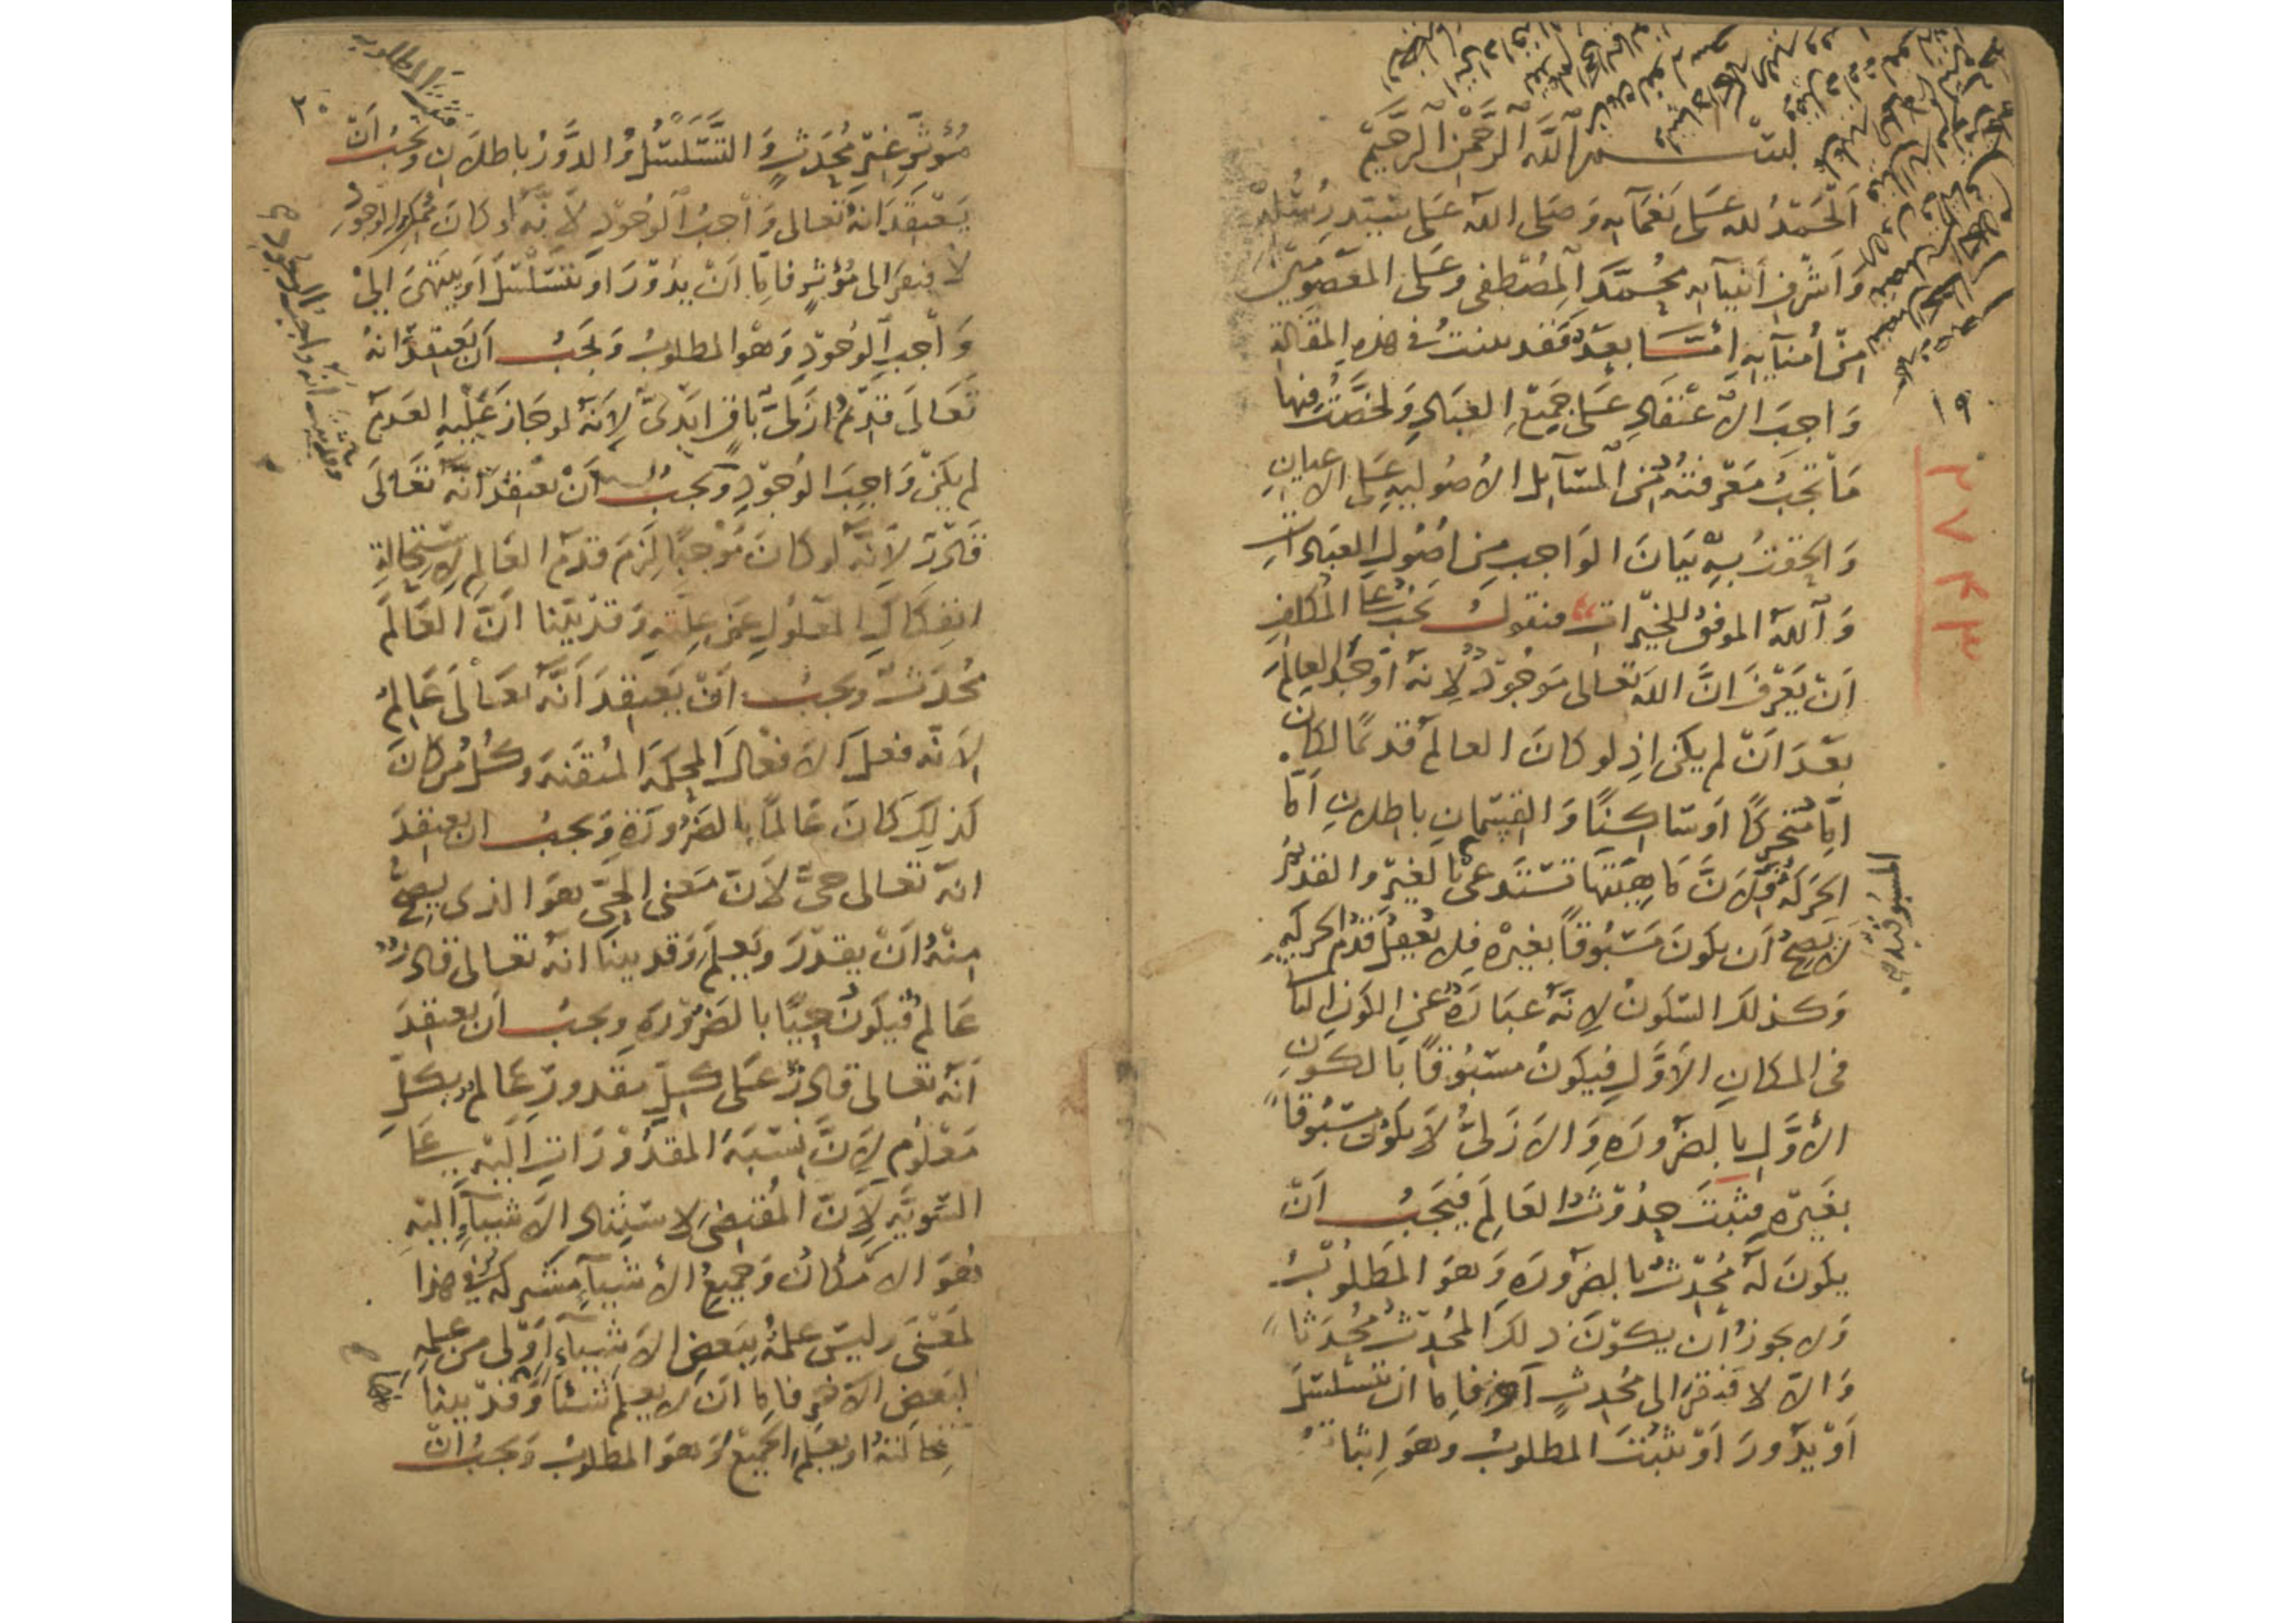 بسم الله الرحمن الرحيم
اَلْحَمْدُ لله عَلى نَعْمَآيه وَصَلى الله عَلى سَيّد رُسُلِهْ
وَاَشْرفِ اَنبيآيه مُحُمَّدٍ المُصْطَفى وَعَلى المَعصُومين
مِنْ اُمنآيه اَمَّا بَعدُ فَقد بينتُ فى هذِه المقالة
وَاجبَ الاعْتقَادِ عَلى جَميعِ العبَادِ وَلخصْتُ فيها
مَا تجبُ مَعْرفتهُ مْن المسَآيل الاُصُوليه عَلى الاعيانِ
وَالحقتُ بهِ بَيَانَ الوَاجب مِن اصُول العبَادَاتِ
وَالله الموفقُ للخيرات فنقولُ يَجبُ على المُكلفِ
اَنْ يَعْرفَ انَّ الله تعَالى مَوجُودٌ لاِنهُ اَوجَدَ العالَمَ
بعْدَ اَنْ لم يكن اذ لو كانَ العالمُ قدِيمًا لكان
امّا مُتحركًا اوسَاكِنًا وَالقسمانِ باطلانِ اَمّا
الحَركةُ فلاَنَّ مَاهِيّتهَا تسْتَدعى المسبوقيةَ بالغير والقديمُ
لا يَصِحُّ اَن يكونَ مَسْبُوقاً بغيْره فلا يعقلُ قدم الحركة
وَكذلكَ السّكونُ لاِنهُ عبَارَةٌ عن الكون الثانى
فى المكانِ الاَوَّلِ فيكونُ مسْبُوقًا بالكونِ
الأوَّل بالضرورَهِ وَالاَزَلىُّ لاَيكونُ مسْبُوقًا
بغَيْره فثبتَ حُدُوثُ العَالَمِ فيَجبُ اَنْ
يكونَ لهُ مُحْدِثٌ بالضرورَهِ وَهوَ المَطلُوبُ
وَلا يجوزُ اَن يكوْنَ ذلكَ المُحْدِث مُحْدَثًا
وَالاّ لافتقَرَ الى مُحْدِثٍ آخر فاِمّا ان يتسَلسَلَ
اَوْيدُورَ اَوْ يثبُتَ المطلُوبُ وهوَ اِثبَاتُ
١٩
٢٧٤٣
٢٠
مُؤثّرٍ غيْرِ مُحْدَثٍ وَ التَّسَلسُلُ وَالدَّوْرُ باطلاَنِ فثبت المطلوب وَيجبُ اَنْ
يَعْتقدَ اَنهُ تعالى وَاجبُ الوُجُودِ لاَنّهُ لو كانَ ممُكنَ الوجُودِ
لافتقرَ الى مُؤثرٍ فامّا اَنْ يدُوْرَ او يتسَلسَلَ اَوْ يَنتهىَ الىْ
وَاجبِ الوُجُودِ وَهْوَ المطلوبُ وَيَجبُ اَن يَعتقدَ انهُ
تَعَالى قَديمٌ اَزَلىٌّ بَاقٍ اَبَدىٌّ لاِنهُ لو جَازَ عَلَيْهِ العَدمُ
لم يكنْ وَاجِبَ الوُجُودِ وَيجبُ اَنْ يعتقدَ انّه تعَالَى
قادِرٌ لاَنَّهُ لو كانَ مُوْجبًا لزمَ قدَمُ العَالم لاِستحالةِ
انفكاكِ المَعلولِ عَن علتهِ وَقدْ بَيّنا اَنَّ العَالَمَ
مُحْدَثٌ ويجبُ اَنْ يَعتقِدَ اَنَّهُ تعَالى عَالمٌ
لاَنّه فعَلَ الاَفعْالَ المحكمَةَ المُتقنهَ وكُلُّ مَن كانَ
كَذلِكَ كانَ عَالمًا بالضرُورَةِ وَيجبُ ان يعتقِدَ
انهُ تعالى حىٌّ لاَنّ مَعنى الحىِّ هوَ الذى يصحُّ
مِنْهُ اَنْ يقدرَ ويَعلمَ وَقدْ بينَا انهُ تعالى قادرٌ
عَالمٌ فيكونُ حيًّا بالضرورَهِ ويجبُ اَن يعتقدَ
اَنهُ تعالى قادرٌ عَلى كلّ مَقدورٍ عَالمٌ بكلّ
مَعْلُومٍ لاِنَّ نِسْبَةَ المَقدُوْرَاتِ اليْهِ عَلَى
السّويّهِ لاَِنّ المُقتضى لاِستنادِ الاَشيآءِ اليْهِ
هُوَ الامْكانُ وَجميعُ الأشيآءِ مشتركةٌ فى هذا
المَعْنى وليسَ علمُهُ ببَعضِ الاَشيَآءِ اَوْلى من علمهِ
ببَعضِ الآخر فامّا اَنْ لا يعلمَ شيئًا وَقدْ بينا
استحالتهُ اويعلمَ الجميعَ وَهوَ المطلوبُ وَيجبُ انْ